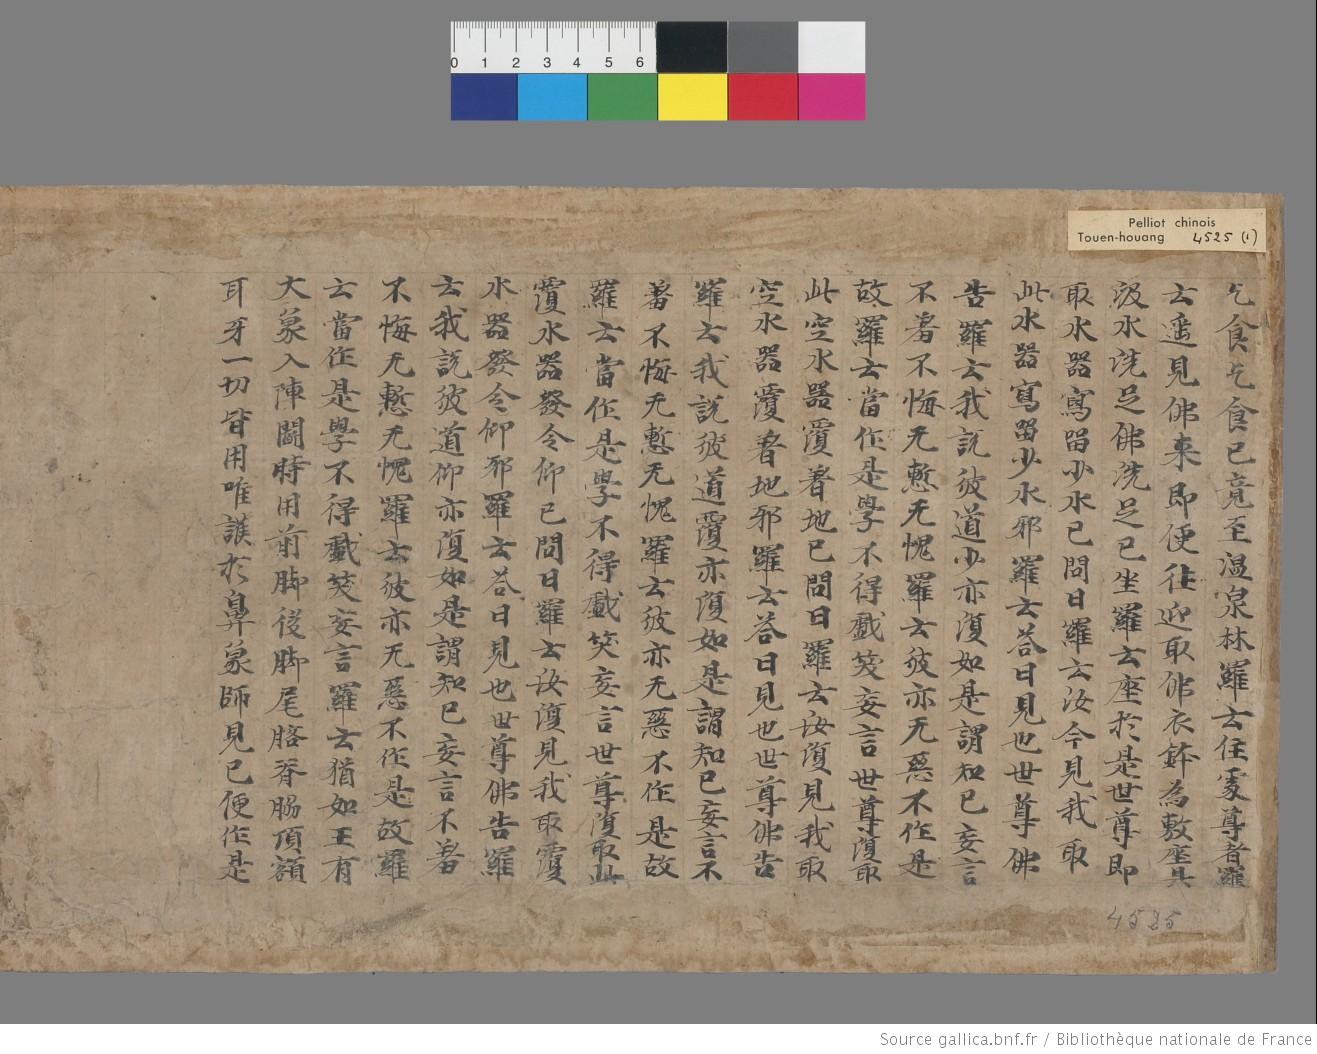 Pelliot chinois
Touen-houang 4525 (1)
乞食乞食已竟至温泉林羅云住處尊者羅
云遥見佛来即便往迎取佛衣鉢為敷座具
汲水洗足佛洗足已坐羅云座於是世尊即
取水器寫留少水已問曰羅云汝今見我取
此水器寫留少水邪羅云荅曰見也世尊佛
告羅云我説彼道少亦復如是謂知已妄言
不著不悔无慙无愧羅云彼亦无惡不作是
故羅云當作是學不得戲笑妄言世尊復取
此空水器覆著地已問曰羅云汝復見我取
空水器覆著地邪羅云荅曰見也世尊佛告
羅云我説彼道覆亦復如是謂知已妄言不
著不悔无慙无愧羅云彼亦无惡不作是故
羅云當作是學不得戲笑妄言世尊復取此
覆水器發令仰已問曰羅云汝復見我取覆
水器發令仰邪羅云荅曰見也世尊佛告羅
云我説彼道仰亦復如是謂知已妄言不著
不悔无慙无愧羅云彼亦无惡不作是故羅
云當作是學不得戲笑妄言羅云猶如王有
大象入陣鬪時用前脚後脚尾髂脊脇項額
耳牙一切皆用唯護於鼻象師見已便作是
4525
0 1 2 3 4 5 6
Source gallica.bnf.fr / Bibliothèque nationale de France